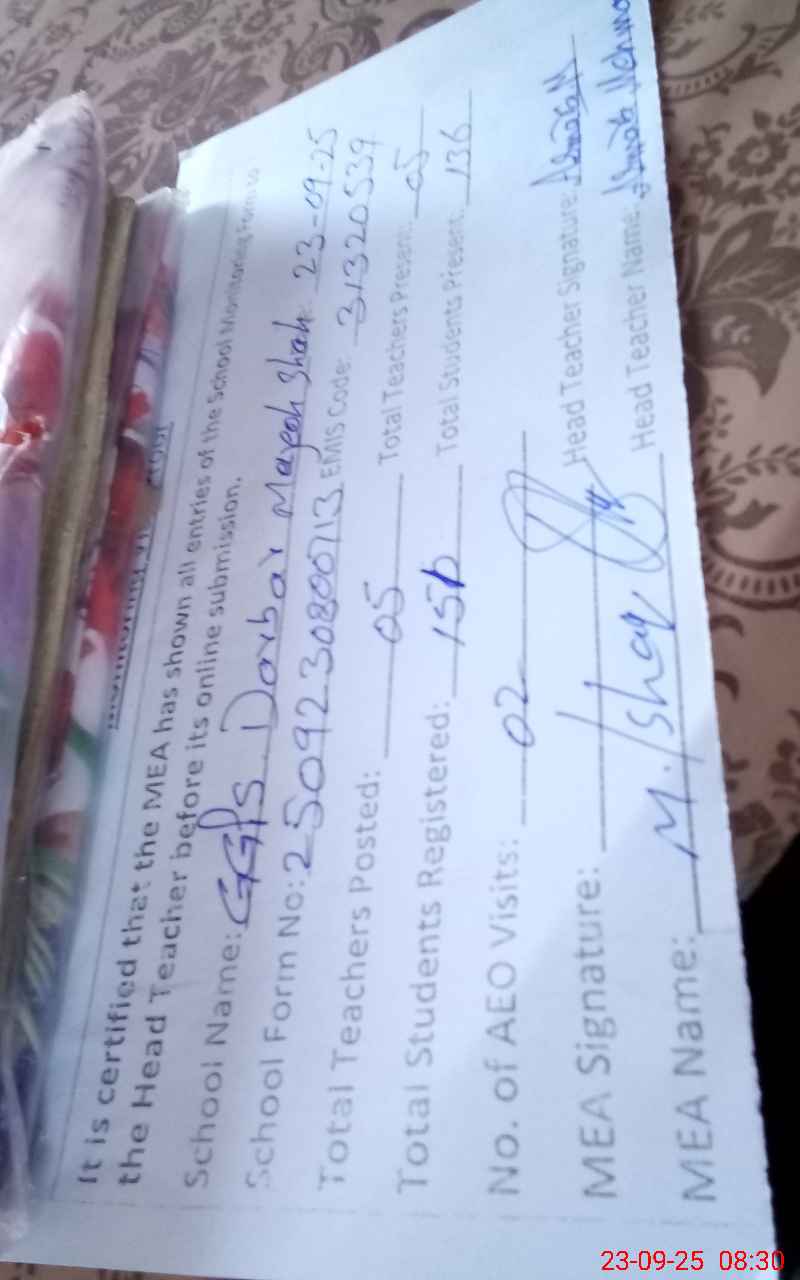 It is certified that the MEA has shown all entries of the School Monitoring Form to
the Head Teacher before its online submission.
School Name: GGPS Darbar Mayoh Shah 23-09-25
School Form No: 2509230800713 EMIS Code: 31320539
Total Teachers Posted: 05 Total Teachers Present: 05
Total Students Registered: 150 Total Students Present: 136
No. of AEO Visits: 02
MEA Signature: Head Teacher Signature:
MEA Name: M. Ishaq Head Teacher Name:
23-09-25 08:30